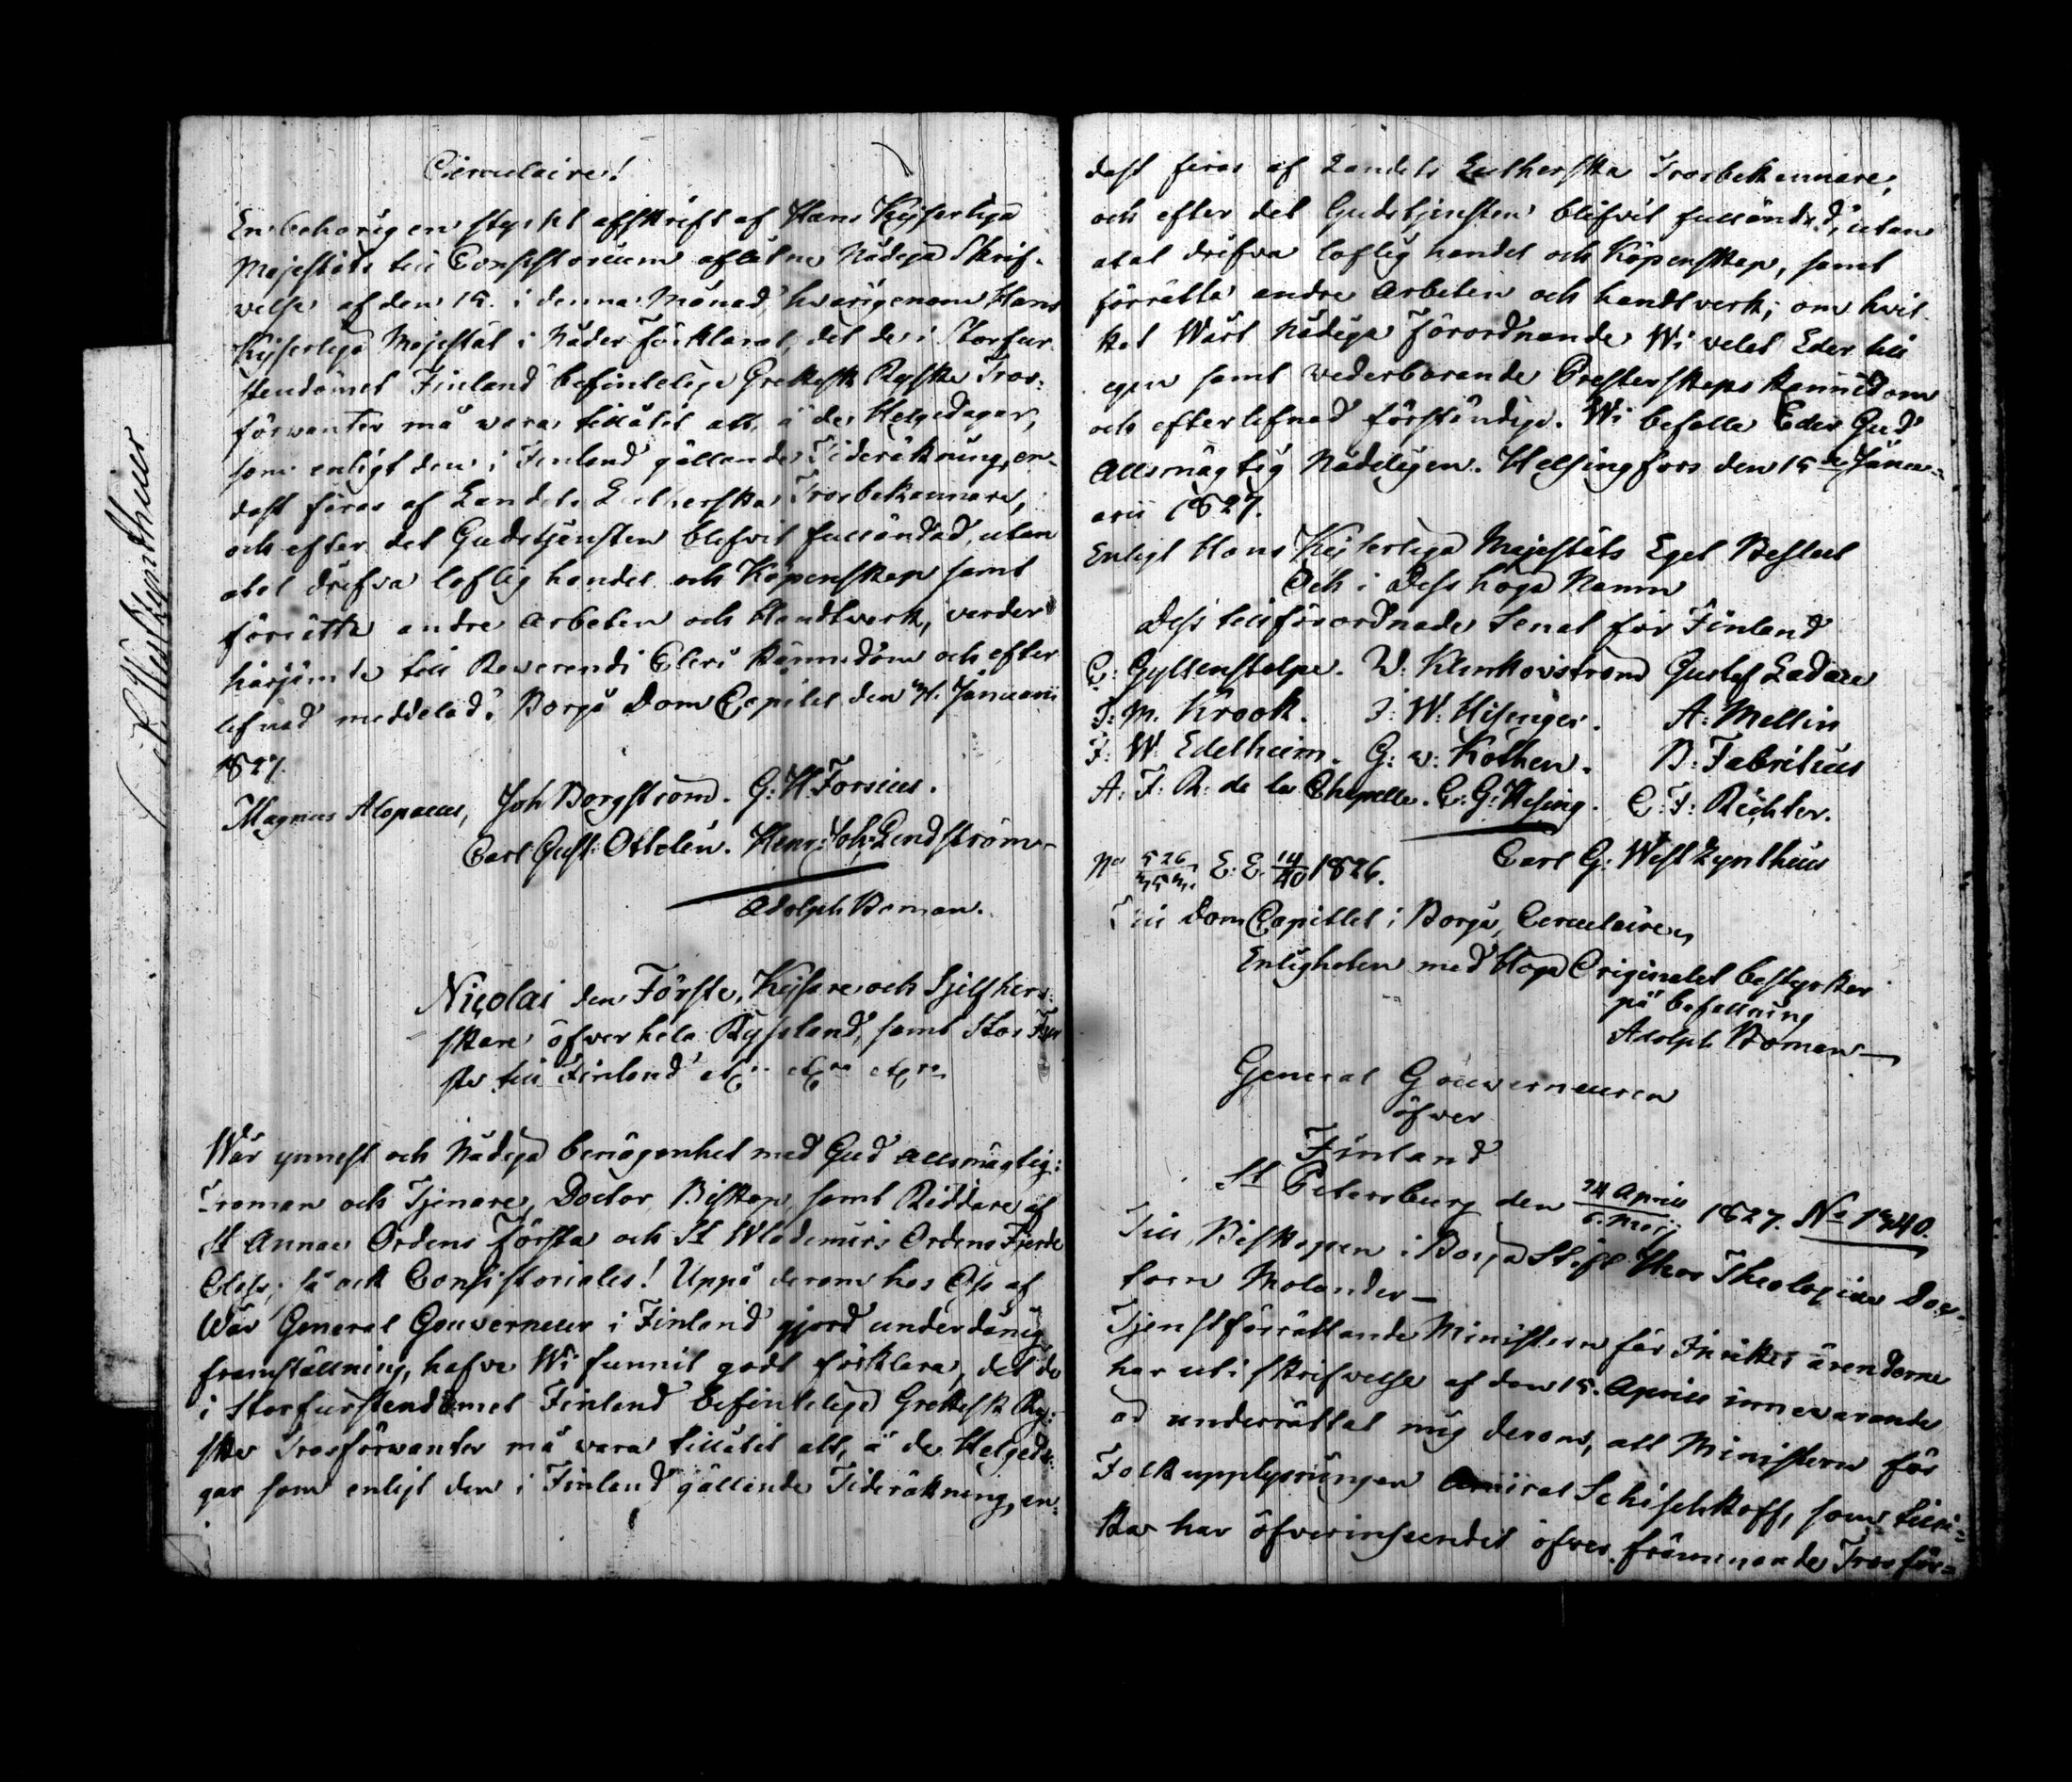 Circulaire!
En behörigen styrkt afskrift af Hans Kejserliga
Majestäts till Consistorium aflåtne Nådiga Skrif-
velse af den 15. i denna Månad, hvarigenom Hans
Kejserliga Majestät i Nåder förklarat, det de i Storfur
stendömet Finland befintelige Grekisk Ryska Tros-
förvanter må wara tillåtit att, å de Helgedagar,
som enligt den i Finland gällande Tideräkning, en-
dast firas af Landets Lutherska Trosbekännare,
och efter det Gudstjensten blifvit fulländad, utan
åtal drifva loflig handel och Köpenskap samt
förrätta andra Arbeten och Handtverk, varder
härjämte till Reverendi Cleri kännedom och efter
lefnad meddelad. Borgå Dom Capitel den 24. Januarii
1827.
Magnus Alopaeus, Joh Borgström. G: H: Forsius.
Carl Gust: Ottelin. Henr: Joh: Lindström
Adolph Boman.
Nicolai den Förste, Kejsare och Sjelfhers-
skare öfver hela Ryssland, samt Stor Fur
ste till Finland etc. etc. etc.
Wår ynnest och Nådiga benägenhet med Gud Allsmägtig:
Troman och Tjenare, Doctor, Biskop, samt Riddare af
St Annae Ordens Första och St Wlademirs Ordens Fjerde
Class; så ock Consistoriales! Uppå derom hos Oss af
Wår General Gouverneur i Finland gjord underdånig
framställning, hafve Wi funnit godt förklara, det de
i Storfurstendömet Finland befintelige Grekisk Ry-
ska Trosförwanter må vara tillåtit att, å de Helgeda-
gar som enligt den i Finland gällande Tideräkning, en-
dast firas af Landets Lutherska Trosbekännare,
och efter det Gudstjensten blifvit fulländad, utan
åtal drifva loflig handel och Köpenskap, samt
förrätta andra Arbeten och handtverk; om hvil
ket Wårt Nådiga Förordnande Wi velat Eder till
egen samt wederbörande Presterskaps kännedom
och efterlefnad förständiga. Wi befalle Eder Gud
Allsmägtig Nådeligen. Helsingfors den 15de Janu-
arii 1827.
Enligt Hans Kejserliga Majestäts Eget Beslut
Och i Dess höga Namn
Dess tillförordnade Senat för Finland
C: Gyllenstolpe. W: Klinkovström Gustaf Ladau
J: M. Krook. J: W: Hisinger. A: Mellin
F: W. Edelheim. G: v: Kothen. B: Fabritius
A: F: R: de la Chapelle. C: G: Hising. C: F: Richter.
Carl G: West Zynthius
No 526 E: E. 14/40 1826.
Till Dom Capitlet i Borgå, Circulaire,
Enligheten med Höga Originalet bestyrker
på befallning
Adolph Boman
General Gouverneuren
öfver
Finland
St Petersburg den 24 April/6. Maij 1827. No 1340.
Till Biskopen i Borgå Stift Herr Theologiae Doc-
torn Molander
Tjenstförrättande Ministern för Inrikes ärenderne
har uti skrifvelse af den 15. April innewarande
år underrättat mig derom, att Ministern för
Folkupplysningen Amiral Schischkoff, som tilli-
ka har öfverinseendet öfver främmande Trosför-